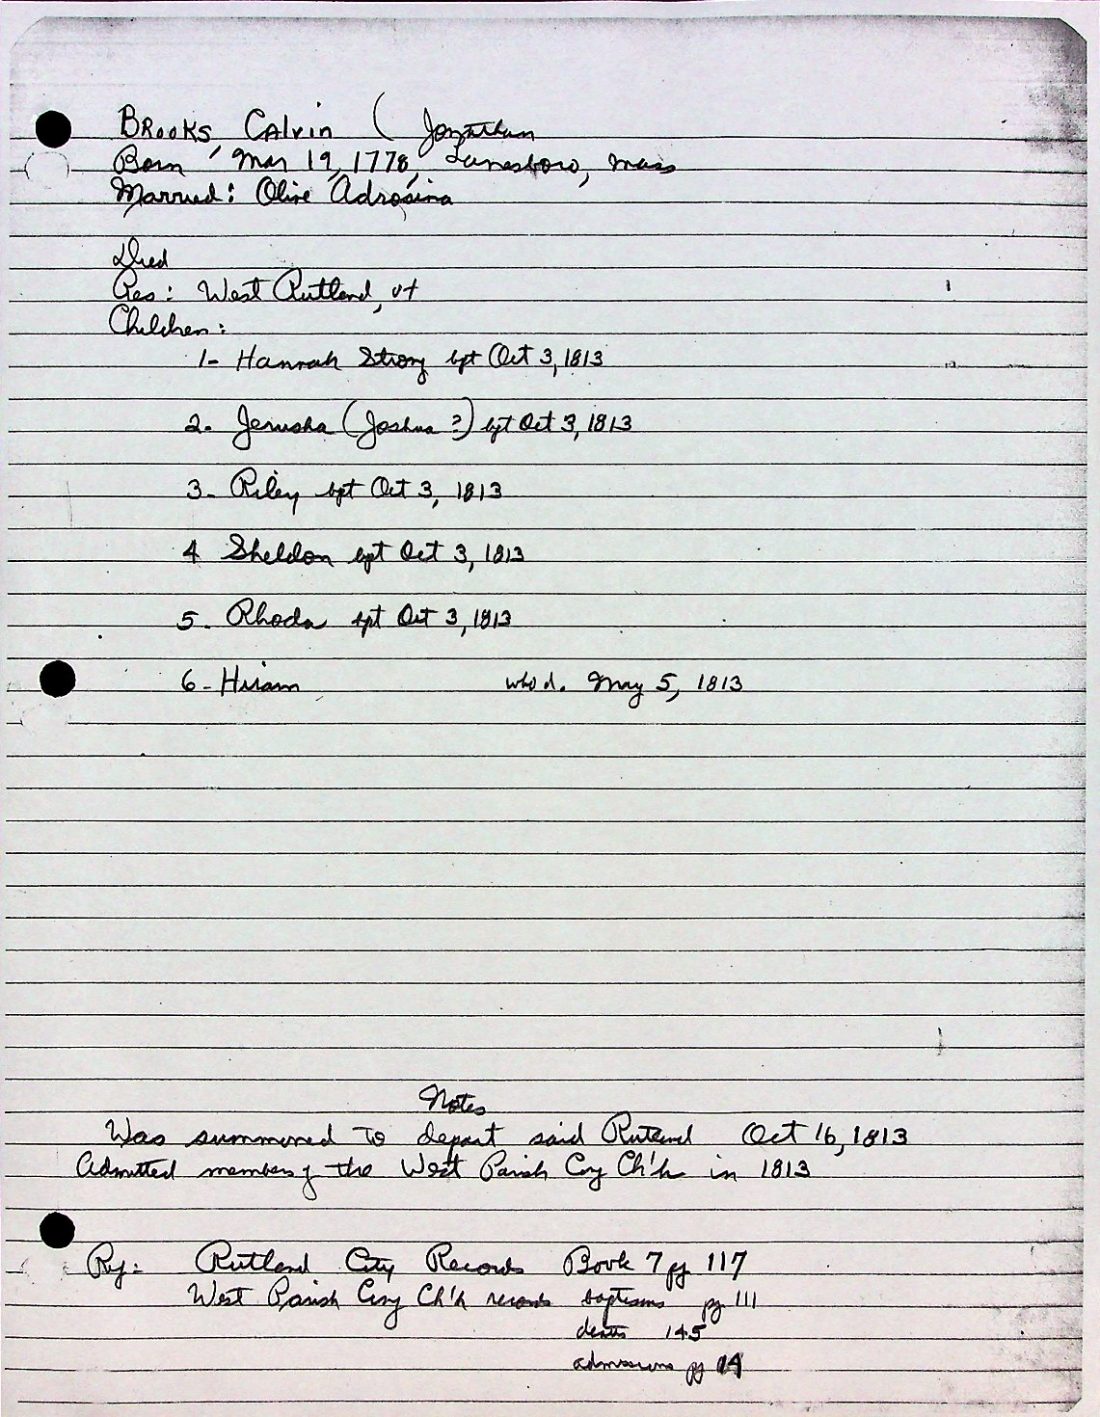 BROOKS, CAlvin ( Jonathan
Born Mar 19, 1778, Lanesboro, Mass
Married: Olive Adrosina
Died
Res: West Rutland, vt
Children:
1- Hannah Strong bpt Oct 3, 1813
2. Jerusha (Joshua ?) bpt Oct 3, 1813
3- Riley bpt Oct 3, 1813
4 Sheldon bpt Oct 3, 1813
5- Rhoda bpt Oct 3, 1813
6- Hiram who d. May 5, 1813
Notes
Was summoned to depart said Rutland Oct 16, 1813
Admitted members of the West Parish Cong Ch'h in 1813
Ref: Rutland City Records Book 7 pg 117
West Parish Cong Ch'h records baptisms pg 111
deaths 145
admissions pg